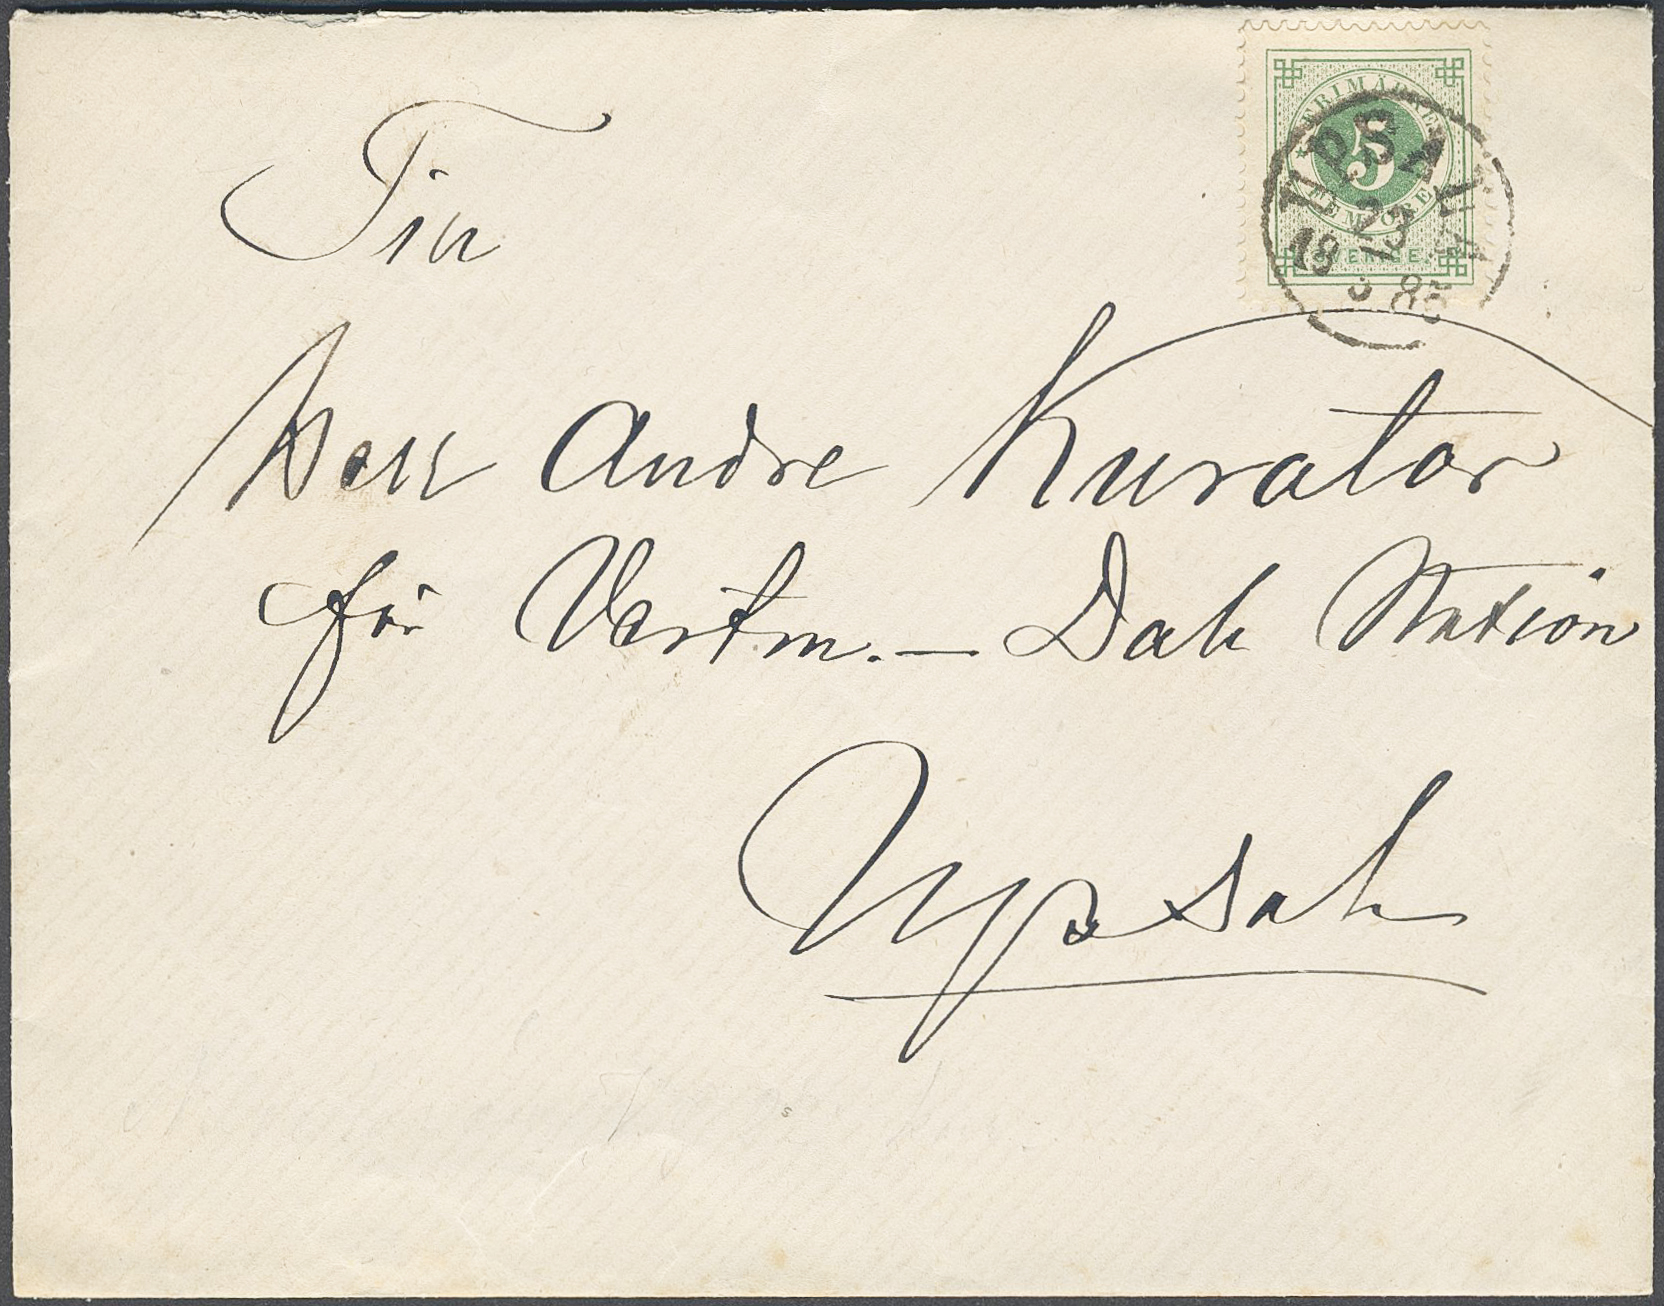 FRIMÄRKE
5
FEM ÖRE
SVERIGE.
UPSALA
23
18 85
Till
Herr Andre Kurator
för Vestm.— Dala Nation
Upsala